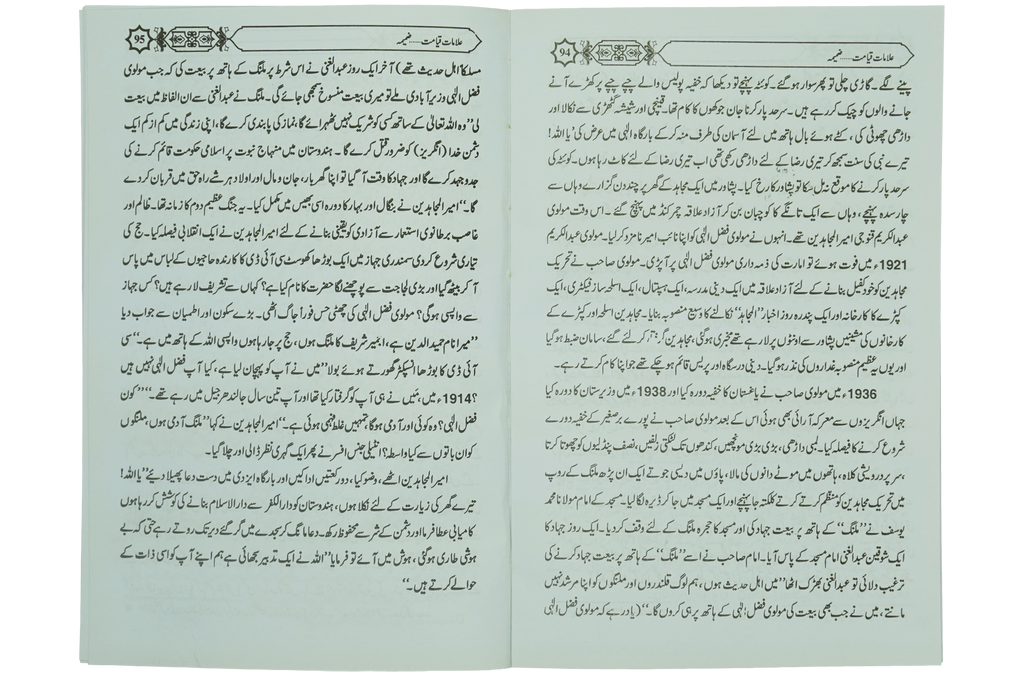 علامات قیامت ..... ضمیمہ
94
پینے لگے۔ گاڑی چلی تو پھر سوار ہو گئے۔ کوئٹہ پہنچے تو دیکھا کہ خفیہ پولیس والے چپے چپے پر کھڑے آنے
جانے والوں کو چیک کر رہے ہیں۔ سرحد پار کرنا جان جوکھوں کا کام تھا۔ قینچی اور شیشہ گٹھڑی سے نکالا اور
داڑھی چھوٹی کی، کٹے ہوئے بال ہاتھ میں لئے آسمان کی طرف منہ کر کے بارگاہ الٰہی میں عرض کی ’’یا اللہ!
تیرے نبی کی سنت سمجھ کر تیری رضا کے لئے داڑھی رکھی تھی اب تیری رضا کے لئے کاٹ رہا ہوں۔ کوئٹہ کی
سرحد پار کرنے کا موقع نہ مل سکا تو پشاور کا رخ کیا۔ پشاور میں ایک مجاہد کے گھر پر چند دن گزارے وہاں سے
چارسدہ پہنچے، وہاں سے ایک تانگے کا کوچبان بن کر آزاد علاقہ چمرکنڈ میں پہنچ گئے۔ اس وقت مولوی
عبدالکریم قنوجی امیر المجاہدین تھے۔ انہوں نے مولوی فضل الٰہی کو اپنا نائب امیر نامزد کر لیا۔ مولوی عبدالکریم
1921ء میں فوت ہوئے تو امارت کی ذمہ داری مولوی فضل الٰہی پر آ پڑی۔ مولوی صاحب نے تحریک
مجاہدین کو خود کفیل بنانے کے لئے آزاد علاقہ میں ایک دینی مدرسہ، ایک ہسپتال، ایک اسلحہ ساز فیکٹری، ایک
کپڑے کا کارخانہ اور ایک پندرہ روزہ اخبار ’’المجاہد‘‘ نکالنے کا وسیع منصوبہ بنایا۔ مجاہدین اسلحہ اور کپڑے کے
کارخانوں کی مشینیں پشاور سے اونٹوں پر لا رہے تھے مخبری ہو گئی، مجاہدین گرفتار کر لئے گئے، سامان ضبط ہو گیا
اور یوں یہ عظیم منصوبہ غداروں کی نذر ہو گیا۔ دینی درسگاہ اور پریس قائم ہو چکے تھے جو اپنا کام کرتے رہے۔
1936ء میں مولوی صاحب نے یاغستان کا خفیہ دورہ کیا اور 1938ء میں وزیرستان کا دورہ کیا
جہاں انگریزوں سے معرکہ آرائی بھی ہوئی اس کے بعد مولوی صاحب نے پورے برصغیر کے خفیہ دورے
شروع کرنے کا فیصلہ کیا۔ لمبی داڑھی، بڑی بڑی مونچھیں، کندھوں تک لٹکتی زلفیں، نصف پنڈلیوں کو چھوتا کرتا
،سر پر درویشی کلاہ، ہاتھوں میں موٹے دانوں کی مالا، پاؤں میں دیسی جوتے ایک ان پڑھ ملنگ کے روپ
میں تحریک مجاہدین کو منظم کرتے کرتے کلکتہ جا پہنچے اور ایک مسجد میں جا کر ڈیرہ لگا لیا۔ مسجد کے امام مولانا محمد
یوسف نے ’’ملنگ‘‘ کے ہاتھ پر بیعت جہاد کی اور مسجد کا حجرہ ملنگ کے لئے وقف کر دیا۔ ایک روز جہاد کا
ایک شوقین عبدالغنی امام مسجد کے پاس آیا۔ امام صاحب نے اسے ’’ملنگ‘‘ کے ہاتھ پر بیعت جہاد کرنے کی
ترغیب دلائی تو عبدالغنی بھڑک اٹھا ’’میں اہل حدیث ہوں، ہم لوگ قلندروں اور ملنگوں کو اپنا مرشد نہیں
مانتے، میں نے جب بھی بیعت کی مولوی فضل الٰہی کے ہاتھ پر ہی کروں گا۔‘‘ (یاد رہے کہ مولوی فضل الٰہی
علامات قیامت ..... ضمیمہ
95
مسلکاً اہل حدیث تھے) آخر ایک روز عبدالغنی نے اس شرط پر ملنگ کے ہاتھ پر بیعت کی کہ جب مولوی
فضل الٰہی وزیر آبادی ملے تو میری بیعت منسوخ سمجھی جائے گی۔ ملنگ نے عبدالغنی سے ان الفاظ میں بیعت
لی ’’وہ اللہ تعالیٰ کے ساتھ کسی کو شریک نہیں ٹھہرائے گا، نماز کی پابندی کرے گا، اپنی زندگی میں کم از کم ایک
دشمن خدا (انگریز) کو ضرور قتل کرے گا۔ ہندوستان میں منہاج نبوت پر اسلامی حکومت قائم کرنے کی
جدوجہد کرے گا اور جہاد کا وقت آ گیا تو اپنا گھر بار، جان و مال اور اولاد ہر شے راہ حق میں قربان کر دے
گا۔‘‘ امیر المجاہدین نے بنگال اور بہار کا دورہ اسی بھیس میں مکمل کیا۔ یہ جنگ عظیم دوم کا زمانہ تھا۔ ظالم اور
غاصب برطانوی استعمار سے آزادی کو یقینی بنانے کے لئے امیر المجاہدین نے ایک انقلابی فیصلہ کیا۔ حج کی
تیاری شروع کر دی سمندری جہاز میں ایک بوڑھا کھوسٹ سی آئی ڈی کا کارندہ حاجیوں کے لباس میں پاس
آ کر بیٹھ گیا اور بڑی لجاجت سے پوچھنے لگا حضرت کا نام کیا ہے؟ کہاں سے تشریف لا رہے ہیں؟ کس جہاز
سے واپسی ہوگی؟ مولوی فضل الٰہی کی چھٹی حس فوراً جاگ اٹھی۔ بڑے سکون اور اطمینان سے جواب دیا
’’میرا نام حمید الدین ہے، اجمیر شریف کا ملنگ ہوں، حج پر جا رہا ہوں واپسی اللہ کے ہاتھ میں ہے۔‘‘ سی
آئی ڈی کا بوڑھا انسپکٹر گھورتے ہوئے بولا ’’میں نے آپ کو پہچان لیا ہے، کیا آپ فضل الٰہی نہیں ہیں
؟ 1914ء میں، میں نے ہی آپ کو گرفتار کیا تھا اور آپ تین سال جالندھر جیل میں رہے تھے۔‘‘ ’’کون
فضل الٰہی؟ وہ کوئی اور آدمی ہوگا، تمہیں غلط فہمی ہوئی ہے۔‘‘ امیر المجاہدین نے کہا ’’ملنگ آدمی ہوں، ملنگوں
کو ان باتوں سے کیا واسطہ؟ انٹیلی جنس افسر نے پھر ایک گہری نظر ڈالی اور چلا گیا۔
امیر المجاہدین اٹھے، وضو کیا، دو رکعتیں ادا کیں اور بارگاہ ایزدی میں دست دعا پھیلا دیئے ’’یا اللہ!
تیرے گھر کی زیارت کے لئے نکلا ہوں، ہندوستان کو دارالکفر سے دارالاسلام بنانے کی کوشش کر رہا ہوں
کامیابی عطا فرما اور دشمن کے شر سے محفوظ رکھ۔ دعا مانگ کر سجدے میں گر گئے دیر تک روتے رہے حتی کہ بے
ہوشی طاری ہو گئی، ہوش میں آئے تو فرمایا ’’اللہ نے ایک تدبیر سجھائی ہے ہم اپنے آپ کو اسی ذات کے
حوالے کرتے ہیں۔‘‘